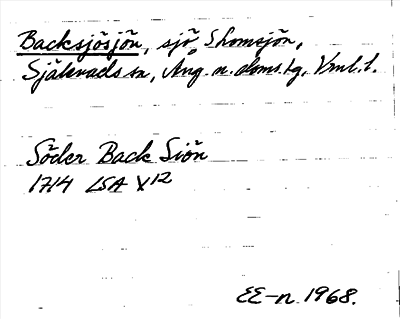 Backsjösjön, sjö, Shomsjön,
Själevads sn, Ång. n. doms.tg, Vnl.l.
Söder Back Siön
1714 LSA X12
EE-n 1968.